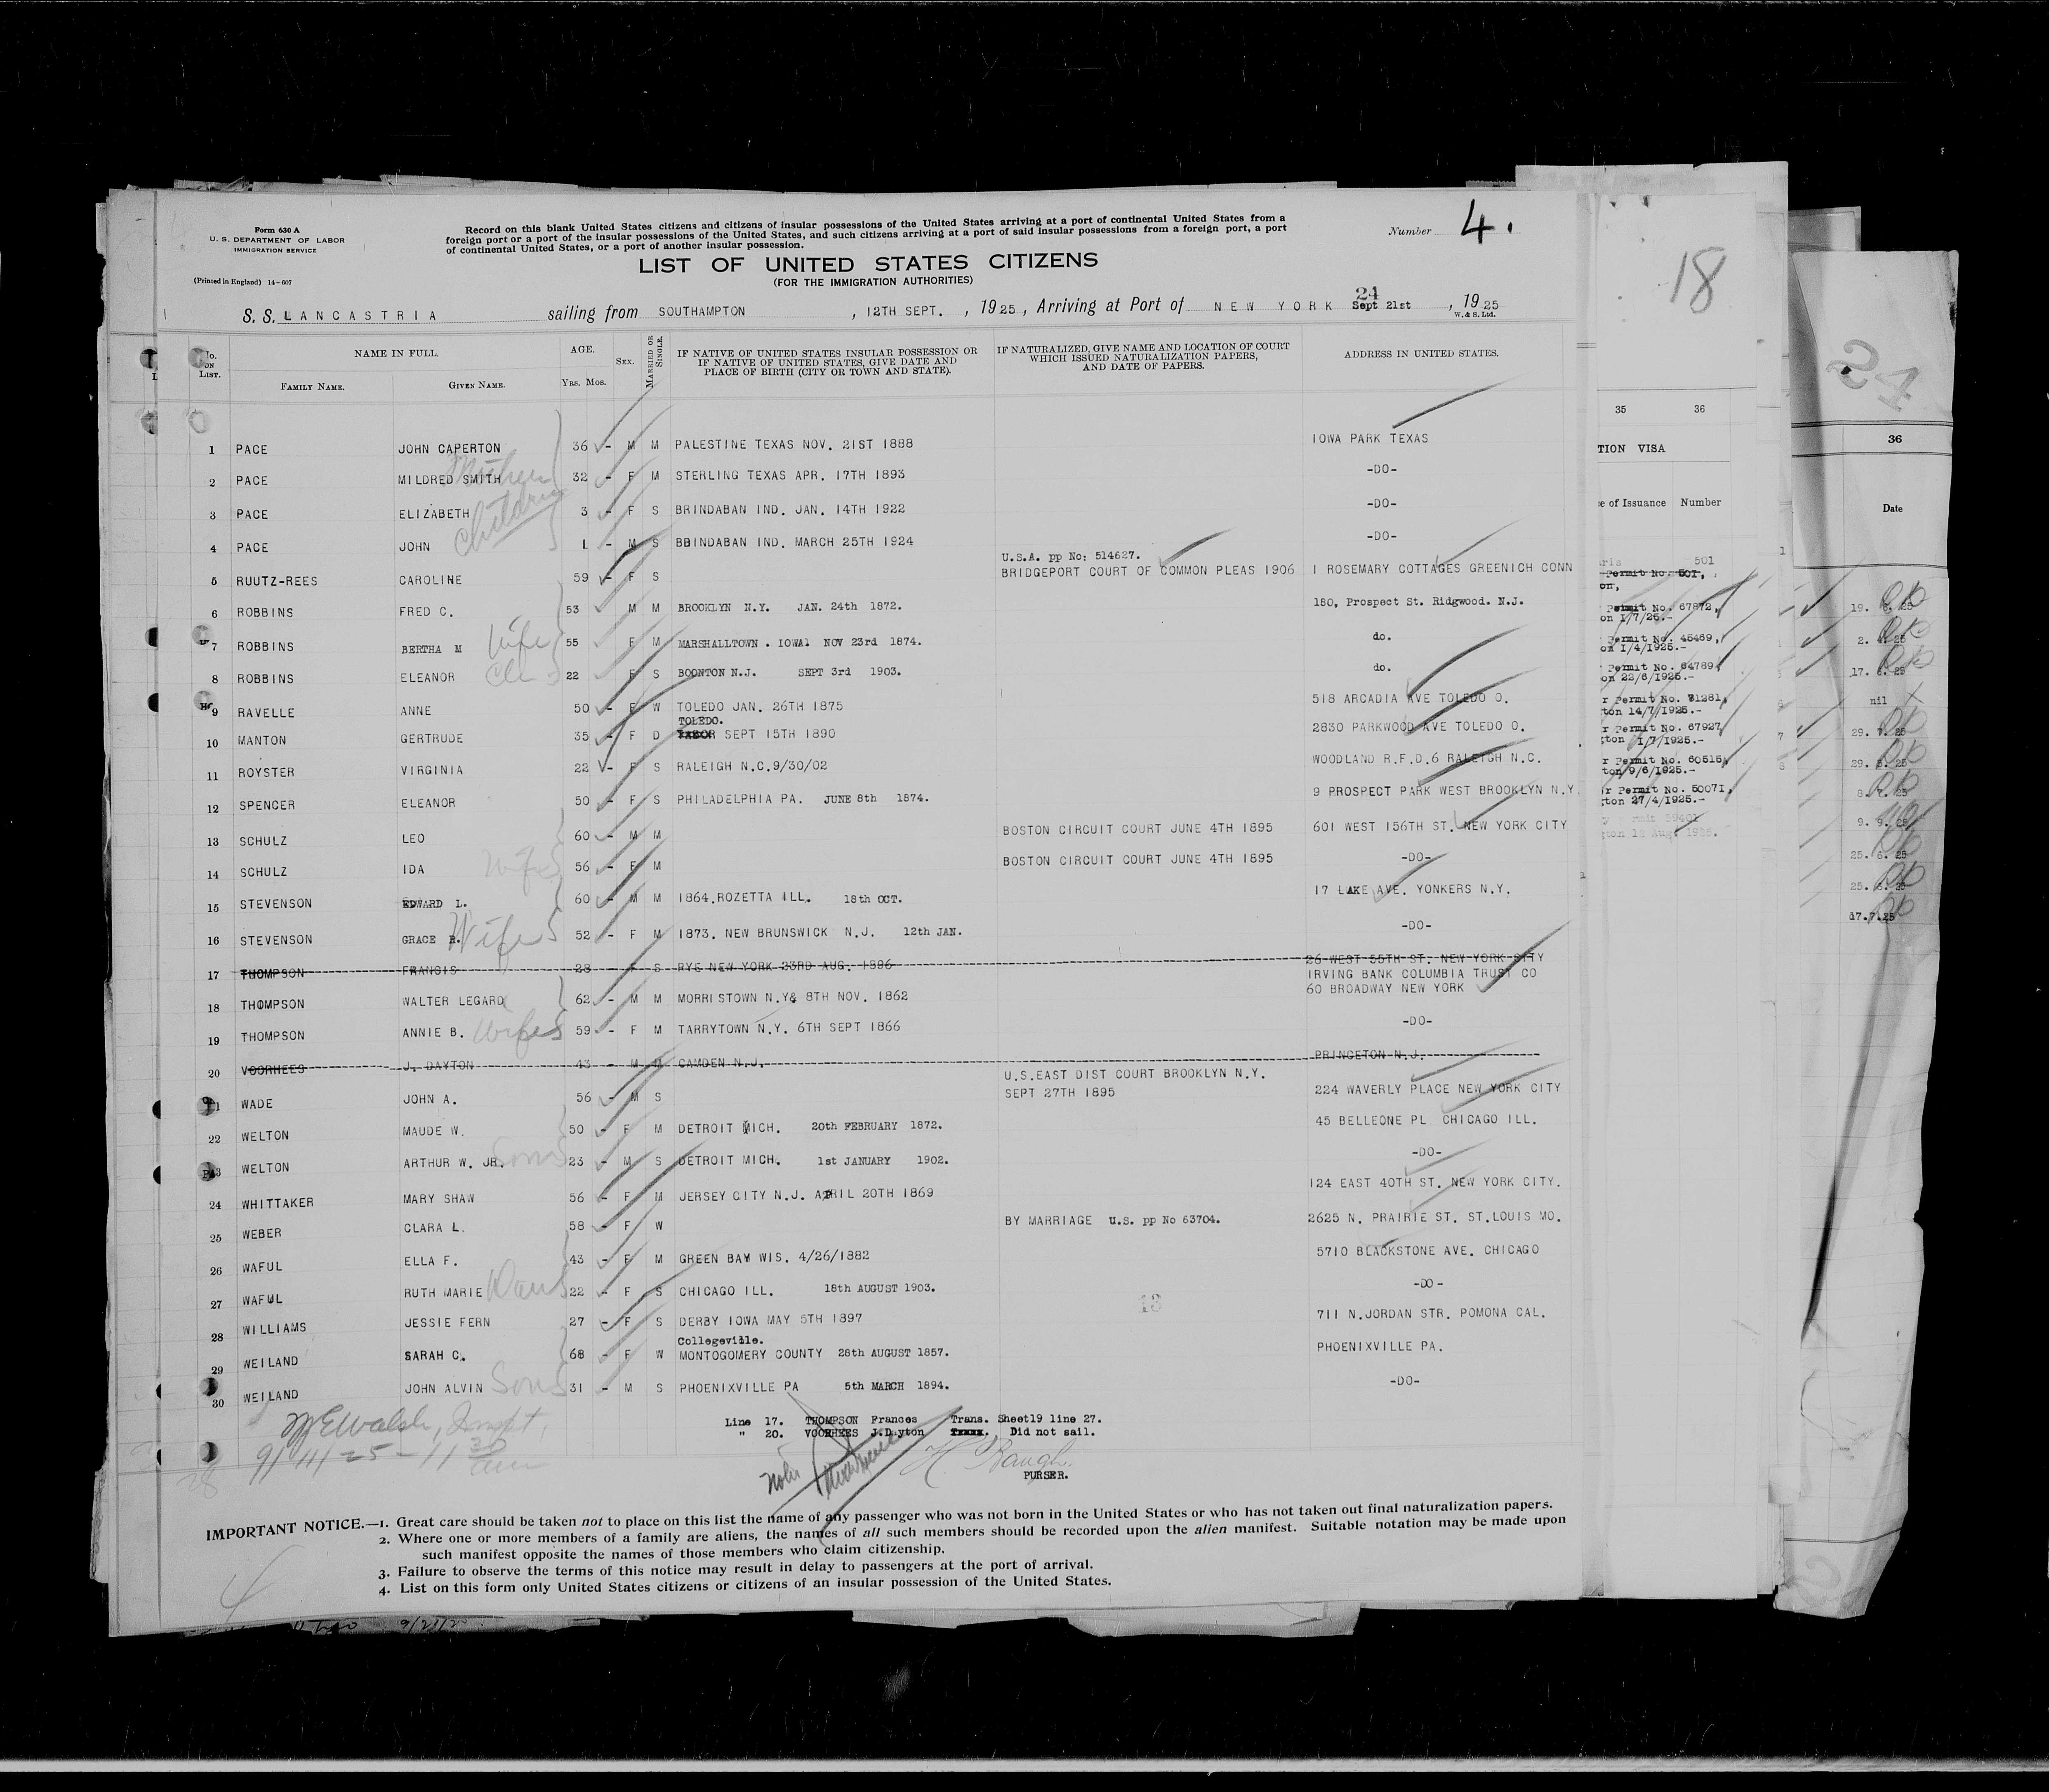 Form 630 A
U. S. DEPARTMENT OF LABOR
IMMIGRATION SERVICE
(Printed in England) 14-607
Record on this blank United States citizens and citizens of insular possessions of the United States arriving at a port of continental United States from a
foreign port or a port of the insular possessions of the United States, and such citizens arriving at a port of said insular possessions from a foreign port, a port
of continental United States, or a port of another insular possession.
Number 4.
LIST OF UNITED STATES CITIZENS
(FOR THE IMMIGRATION AUTHORITIES)
S.S. LANCASTRIA sailing from SOUTHAMPTON, 12TH SEPT., 1925, Arriving at Port of NEW YORK 24 Sept 21st, 1925
W. & S. Ltd.
No. ON LIST. NAME IN FULL. FAMILY NAME. GIVEN NAME. AGE. YRS. MOS. SEX. MARRIED OR SINGLE. IF NATIVE OF UNITED STATES INSULAR POSSESSION OR IF NATIVE OF UNITED STATES, GIVE DATE AND PLACE OF BIRTH (CITY OR TOWN AND STATE). IF NATURALIZED, GIVE NAME AND LOCATION OF COURT WHICH ISSUED NATURALIZATION PAPERS, AND DATE OF PAPERS. ADDRESS IN UNITED STATES.
1 PACE JOHN CAPERTON 36 - M M PALESTINE TEXAS NOV. 21ST 1888 IOWA PARK TEXAS
2 PACE MILDRED SMITH Mother 32 - F M STERLING TEXAS APR. 17TH 1893 -DO-
3 PACE ELIZABETH Children 3 - F S BRINDABAN IND. JAN. 14TH 1922 -DO-
4 PACE JOHN 1 - M S BBINDABAN IND. MARCH 25TH 1924 -DO-
U.S.A. pp No: 514627.
5 RUUTZ-REES CAROLINE 59 - F S BRIDGEPORT COURT OF COMMON PLEAS 1906 1 ROSEMARY COTTAGES GREENICH CONN
6 ROBBINS FRED C. 53 M M BROOKLYN N.Y. JAN. 24th 1872. 180, Prospect St. Ridgwood. N.J.
7 ROBBINS BERTHA M Wife 55 F M MARSHALLTOWN . IOWA1 NOV 23rd 1874. do.
8 ROBBINS ELEANOR 22 F S BOONTON N.J. SEPT 3rd 1903. do.
9 RAVELLE ANNE 50 - F W TOLEDO JAN. 26TH 1875 518 ARCADIA AVE TOLEDO O.
TOLEDO.
10 MANTON GERTRUDE 35 - F D SEPT 15TH 1890 2830 PARKWOOD AVE TOLEDO O.
11 ROYSTER VIRGINIA 22 - F S RALEIGH N.C.9/30/02 WOODLAND R.F.D.6 RALEIGH N.C.
12 SPENCER ELEANOR 50 - F S PHILADELPHIA PA. JUNE 8th 1874. 9 PROSPECT PARK WEST BROOKLYN N.Y.
13 SCHULZ LEO 60 - M M BOSTON CIRCUIT COURT JUNE 4TH 1895 601 WEST 156TH ST. NEW YORK CITY
14 SCHULZ IDA Wife 56 - F M BOSTON CIRCUIT COURT JUNE 4TH 1895 -DO-
15 STEVENSON EDWARD L. 60 - M M 1864.ROZETTA ILL. 18th OCT. 17 LAKE AVE. YONKERS N.Y.
16 STEVENSON GRACE B. Wife 52 - F M 1873. NEW BRUNSWICK N.J. 12th JAN. -DO-
17 THOMPSON FRANCIS 28 F S RYE NEW YORK 23RD AUG. 1896 26 WEST 55TH ST. NEW YORK CITY
IRVING BANK COLUMBIA TRUST CO
18 THOMPSON WALTER LEGARD 62 - M M MORRISTOWN N.Y& 8TH NOV. 1862 60 BROADWAY NEW YORK
19 THOMPSON ANNIE B. Wife 59 - F M TARRYTOWN N.Y. 6TH SEPT 1866 -DO-
20 VOORHEES J. DAYTON 43 - M M CAMDEN N.J. PRINCETON N.J.
U.S.EAST DIST COURT BROOKLYN N.Y.
21 WADE JOHN A. 56 - M S SEPT 27TH 1895 224 WAVERLY PLACE NEW YORK CITY
22 WELTON MAUDE W. 50 - F M DETROIT MICH. 20th FEBRUARY 1872. 45 BELLEONE PL CHICAGO ILL.
23 WELTON ARTHUR W. JR. Son 23 - M S DETROIT MICH. 1st JANUARY 1902. -DO-
24 WHITTAKER MARY SHAW 56 - F M JERSEY CITY N.J. APRIL 20TH 1869 124 EAST 40TH ST. NEW YORK CITY.
25 WEBER CLARA L. 58 - F W BY MARRIAGE U.S. pp No 63704. 2625 N. PRAIRIE ST. ST.LOUIS MO.
26 WAFUL ELLA F. 43 - F M GREEN BAY WIS. 4/26/1882 5710 BLACKSTONE AVE. CHICAGO
27 WAFUL RUTH MARIE Dau 22 - F S CHICAGO ILL. 18th AUGUST 1903. -DO-
13
28 WILLIAMS JESSIE FERN 27 - F S DERBY IOWA MAY 5TH 1897 711 N.JORDAN STR. POMONA CAL.
Collegeville.
29 WEILAND SARAH C. 68 - F W MONTOGOMERY COUNTY 28th AUGUST 1857. PHOENIXVILLE PA.
30 WEILAND JOHN ALVIN Son 31 - M S PHOENIXVILLE PA 5th MARCH 1894. -DO-
Line 17. THOMPSON Frances Trans. Sheet19 line 27.
" 20. VOORHEES J.Dayton Did not sail.
PURSER.
IMPORTANT NOTICE.—1. Great care should be taken not to place on this list the name of any passenger who was not born in the United States or who has not taken out final naturalization papers.
2. Where one or more members of a family are aliens, the names of all such members should be recorded upon the alien manifest. Suitable notation may be made upon
such manifest opposite the names of those members who claim citizenship.
3. Failure to observe the terms of this notice may result in delay to passengers at the port of arrival.
4. List on this form only United States citizens or citizens of an insular possession of the United States.
4
18
35 36
TION VISA
e of Issuance Number
501
Permit No. 501,
on,
Permit No. 67872,
on 1/7/25.-
Permit No. 45469,
on 1/4/1925.-
Permit No. 64789,
on 22/6/1925.-
r Permit No. 71281,
ton 14/7/1925.-
r Permit No. 67927,
ton 1/7/1925.-
r Permit No. 60515,
ton 9/6/1925.-
r Permit No. 50071,
ton 27/4/1925.-
24
36
Date
nil
17.7.25